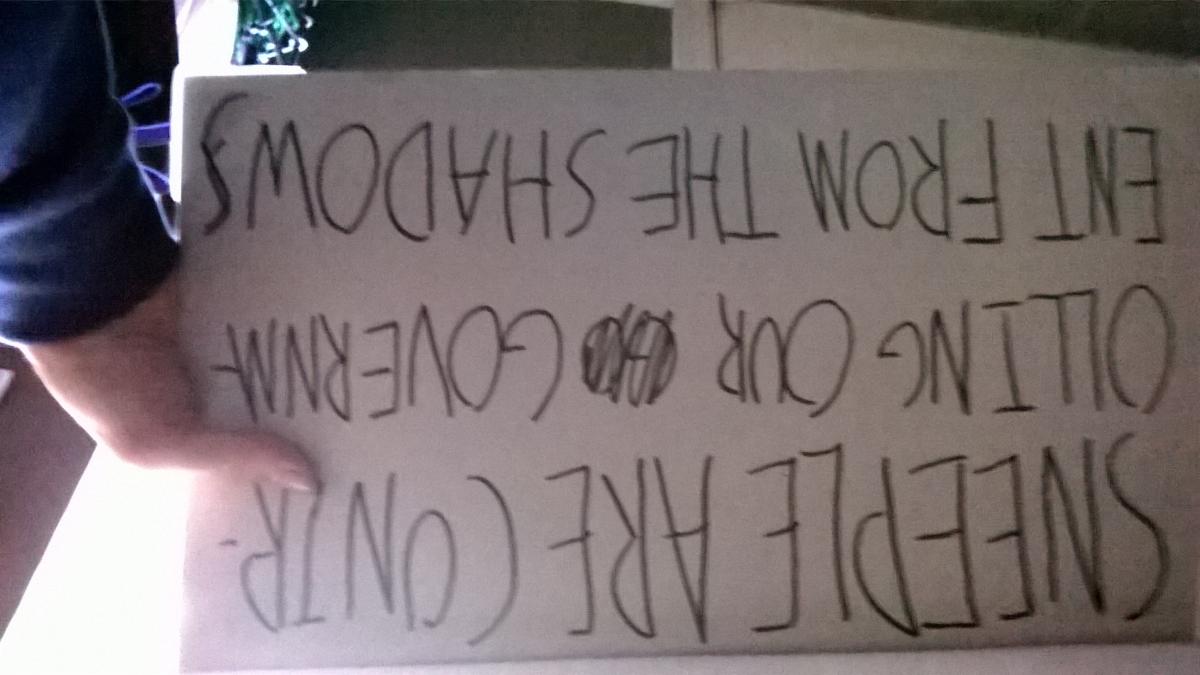 SNEEPLE ARE CONTR-
OLLING OUR GOVERNM-
ENT FROM THE SHADOWS